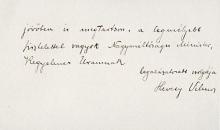 jövőben is megtartson, a legmélyebb
tisztelettel vagyok Nagyméltóságu Miniszter,
Kegyelmes Uramnak
legalázatosabb szolgája
Hevesy Vilmos